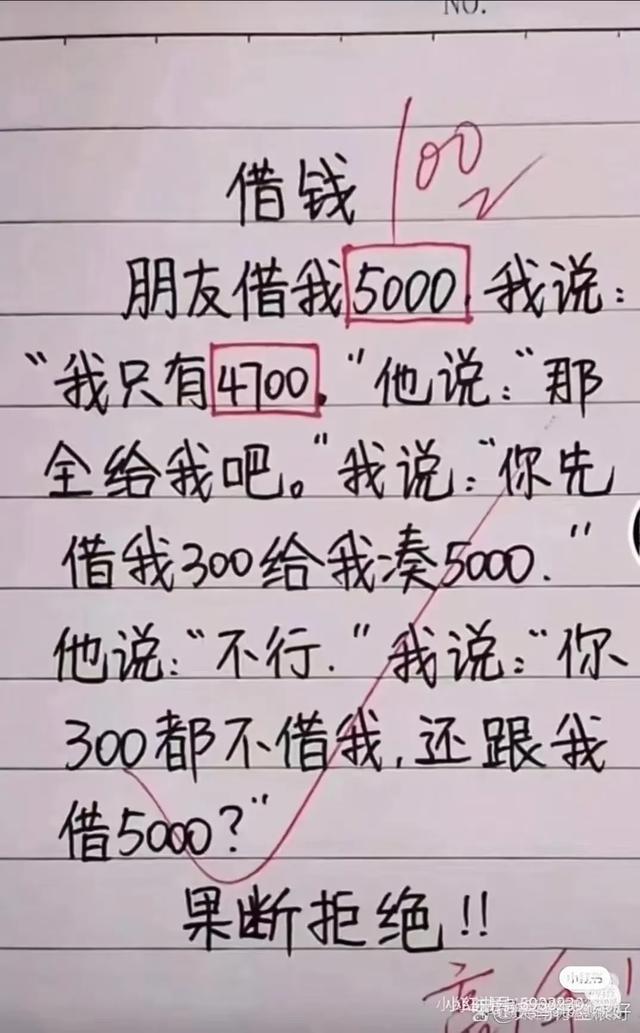 NO.
100
借钱
朋友借我5000，我说：
“我只有4700.”他说：“那
全给我吧。”我说：“你先
借我300给我凑5000.”
他说：“不行.”我说：“你
300都不借我，还跟我
借5000？”
果断拒绝！！
小红书
小红书号：